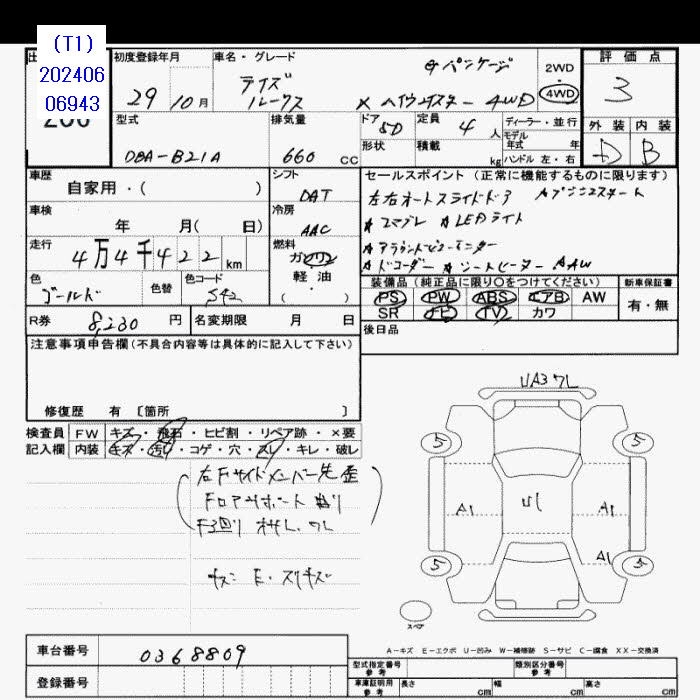 (T1)
202406
06943
初度登録年月
29年10月
車名・グレード
デイズ
ルークス
Gパッケージ
X ハイウェイスター 4WD
2WD
・
4WD
評価点
3
外装 内装
D B
型式
DBA-B21A
排気量
660 CC
ドア
5D
形状
定員
4人
積載
kg
ディーラー・並行
モデル
年式 年
ハンドル 左・右
車歴
自家用・( )
車検
年 月( 日)
走行
4万4千422 km
色
ゴールド
色替
色コード
S42
シフト
DAT
冷房
AAC
燃料
ガソリン
軽・油
( )
セールスポイント (正常に機能するものに限ります)
左右オートスライドドア
☆エマブレ ☆LEDライト
☆アラウンドビューモニター
☆ドコーダー ☆シートヒーター ☆AW
装備品 (純正品に限り○をつけてください)
PS PW ABS エアB AW
SR ナビ TV カワ
新車保証書
有・無
R券 8,230 円
名変期限 月 日
後日品
注意事項申告欄(不具合内容等は具体的に記入して下さい)
修復歴 有 [箇所 ]
検査員
記入欄
FW キズ・飛石・ヒビ割・リペア跡・×要
内装 キズ・汚れ・コゲ・穴・スレ・キレ・破レ
右Fサイドメンバー先歪
Fロアサポート曲り
UA3 ワレ
5 5
A1 U1 A1
A1
5 5
スペア
A-キズ E-エクボ U-凹み W-補修跡 S-サビ C-腐食 XX-交換済
車台番号 0368809
登録番号
型式指定番号
参考
類別区分番号
参考
車庫証明用
参考
長さ cm 幅 cm 高さ cm